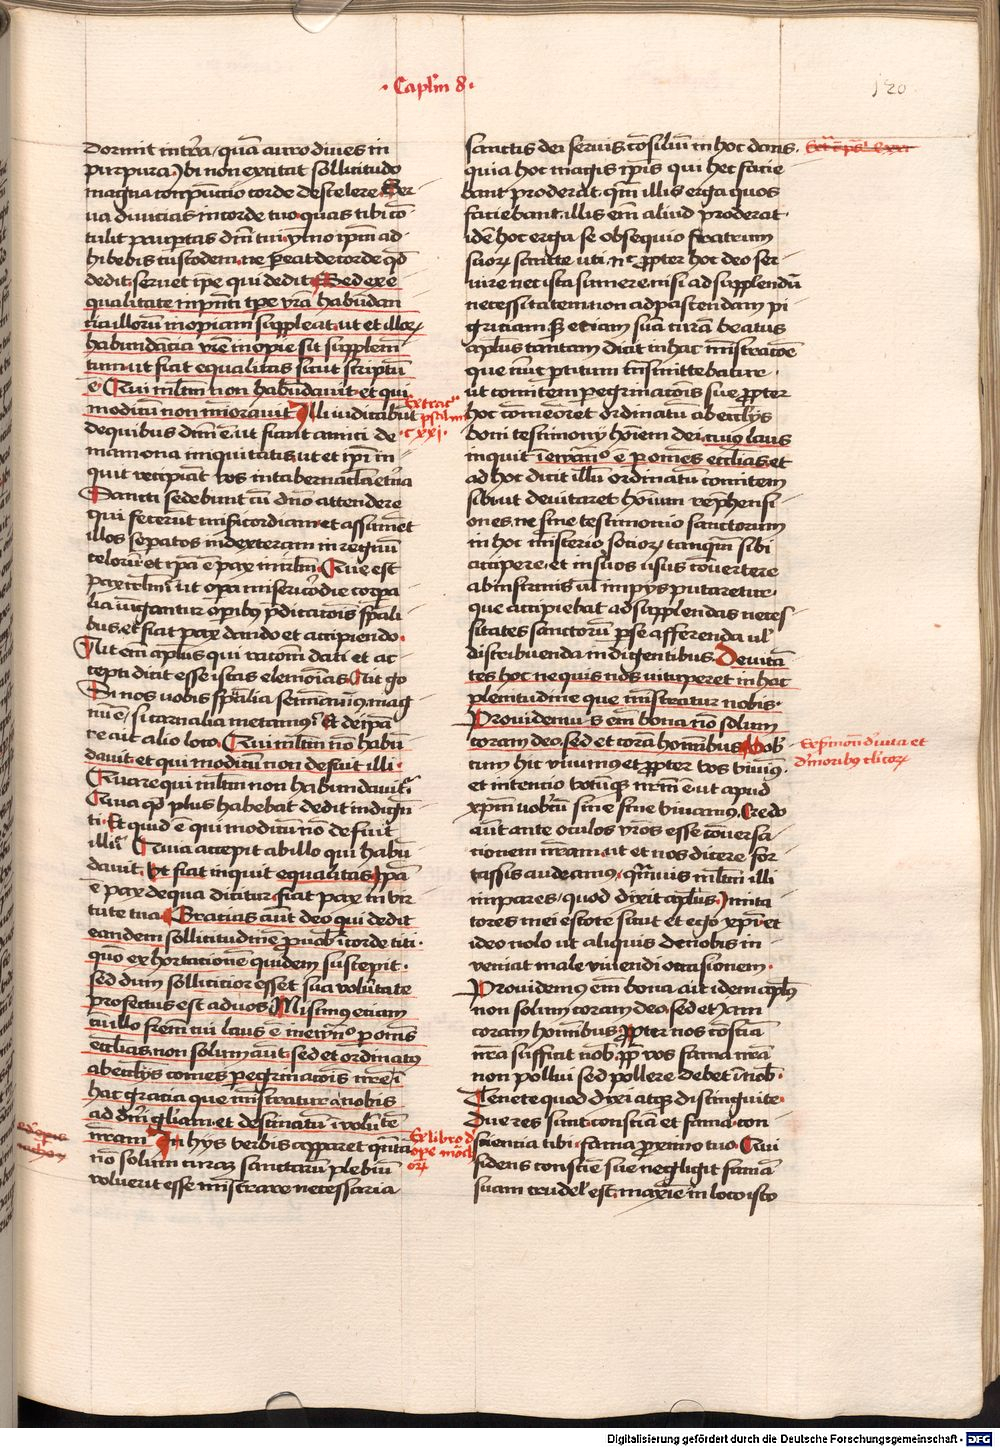 · Capl'm 8 ·
120
dormit in t̄ra / quā auro diues in
purpura Ybi non exitat sollicitudo
magna conpunctio corde de scelere Ser-
ua diuicias in corde tuo quas tibi cō-
tulit paup̱tas dn̄i tui ymo ip̄m ad-
hibebis custodem ne p̱eat de corde qd̄
dedit seruet ip̄e qui dedit Sed ex e-
qualitate in pn̄ti tp̄e vr̄a habūdan
cia illorum inopiam suppleat ut et illoꝝ
habundācia vr̄e inopie sit supplem̄
tum ut fiat equalitas sicut scriptū
ē Qui ml̄tm non habūdauit et qui
modicū non minorauit Illi iudicabūt
de quibus dn̄i ē ut fiant amici de
mamona iniquitatis ut et ip̄i in
quit recipiant vos in tabernacl̄a et̄na
Sancti sedebunt cū dn̄o attendere
qui fecerūt mīsericordiam et assumēt
illos sep̱atos in dexteram in regnū
celorū et ip̄a ē pax
Que est
ut op̱a misericordie corpa
lia iūgantur op̱ibus p̄dicacōis sp̄uali
bus et fiat pax dando et accipiendo
Ait em̄ apl̄us qui racōm dati et ac-
cepti dicit esse istas elemōias Ait g̊
Si nos uobis sp̄ualia seminauimꝰ mag
nū ē / si carnalia metamus Et de ip̄a
re ait alio loco Qui ml̄tm nō habū
dauit et qui modicū non defuit illi
Quare qui ml̄tm non habundauit
Quia qd̄ plus habebat dedit indigēn
ti Et quid ē qui modicū nō defuit
illi Quia accepit ab illo qui habū
dauit Ut fiat inquit equalitas Ipā
ē pax de qua dicitur fiat pax in vir
tute tua Gracias aūt deo qui dedit
eandem sollicitudinē p̱ uob̄ ī corde titi
qm̄ exhortacionē quidem suscepit
sed dum sollicitior esset sua volūtate
profectus est ad uos Misimus etiam
cū illo frēm cui laus ē in ewan̄ᵒ p̱ om̄s
ecclīas non solum aūt sed et ordinatꝰ
ab ecclīijs comes peregrinacōis nr̄e ī
hac gracia que mīstratur a nobis
ad dn̄i glīam et destinatū volūtē
nr̄am In hys verbis apparet
nō solum curaꝫ sanctarū plebiū
voluerit esse mīstrare necessaria
Extract'
psalmi
c xxi
Ex libro d
ope mōch
orꝝ
sanctis dei seruis cōsiliū in hoc dans
quia hoc magis ip̄is qui hec facie
bant proderat qm̄ illis erga quos
faciebant illis em̄ aliud proderat
idē hoc erga se obsequio fratrum
suoꝝ sancte uti nec propter hoc deo ser-
uire nec ista sumere nisi ad supplendū
necessitatem non ad pascendam pi
griciam Sꝫ etiam suā curā beatus
apl̄us tantam dicit in hac mīstracōe
que nunc p̱ titum transmittebatur
ut comitem peregrinacōis sue propter
hoc cōmeoret ordinatū ab ecclīijs
boni testimonij hoīem dei cuius laus
inquit ī ewan̄ᵒ ē p̱ om̄es ecclīas et
ad hoc dicit illū ordinatū comitem
sibi ut deuitaret hoīum rep̱hensi
ones ne sine testimonio sanctorum
in hoc misterio socioꝝ tanqm̄ sibi
accipere et in suos usus cōuertere
ab infirmis ul̄ impijs putaretur
que accipiebat ad supplendas neces-
sitates sanctorū p̱ se afferenda ul'
distribuenda indigentibus Deuitā
tes hoc ne quis nos uituperet in hac
plenitudine que mīstratur nobis
Prouidemus em̄ bona nō solum
coram deo sed et corā hoībus Nob̄
cum hic viuimus et propter vos viuimꝰ
et intencio votūqꝫ nr̄m ē ut apud
xp̄m uobcū sine fine viuamus Credo
aūt ante oculos vr̄os esse cōuersa-
cionem nr̄am ut et nos dicere for-
tassis audeamus quāuis ml̄tm illi
impares / quod dixit apl̄us Imita
tores mei estote sicut et ego xp̄i et
ideo nolo ut aliquis de nobis in-
ueniat male viuendi occasionem
Prouidemus em̄ bona ait idem apl̄us
non solum coram deo sed et iam
coram hoībus Propter nos cōsciā
nr̄a sufficit nob̄ pp̄ vos fama nr̄a
non pollui sed pollere debet ī nob̄
Tenete quod dixi atqꝫ distinguite
Due res sunt consciā et fama con
sciencia tibi fama proximo tuo Qui
fidens conscīe sue negligit famā
suam crudel' est maxīe in loco isto
Ex s̄mōn d' vita et
d' moribꝰ clīcoꝝ
Digitalisierung gefördert durch die Deutsche Forschungsgemeinschaft - DFG